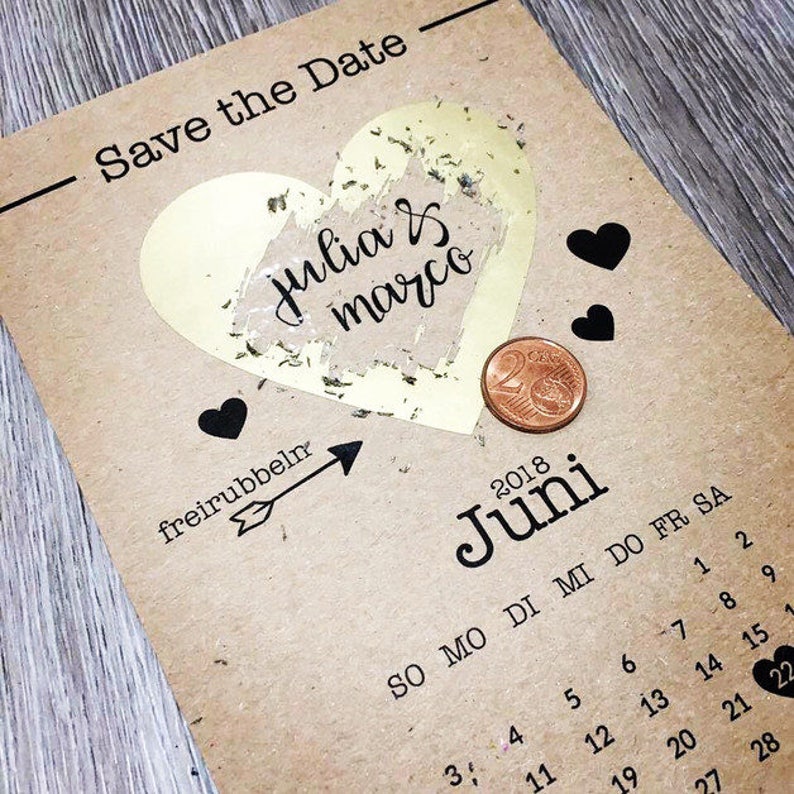 Save the Date
julia &
marco
2 CENT
EURO
freirubbeln
2018
Juni
SO MO DI MI DO FR SA
1 2
3 4 5 6 7 8 9
11 12 13 14 15 1
19 20 21 22
27 28